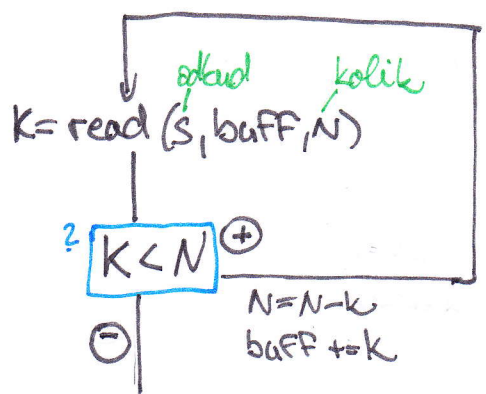 odkud kolik
K=read(S,buff,N)
? K<N +
N=N-k
- buff+=K